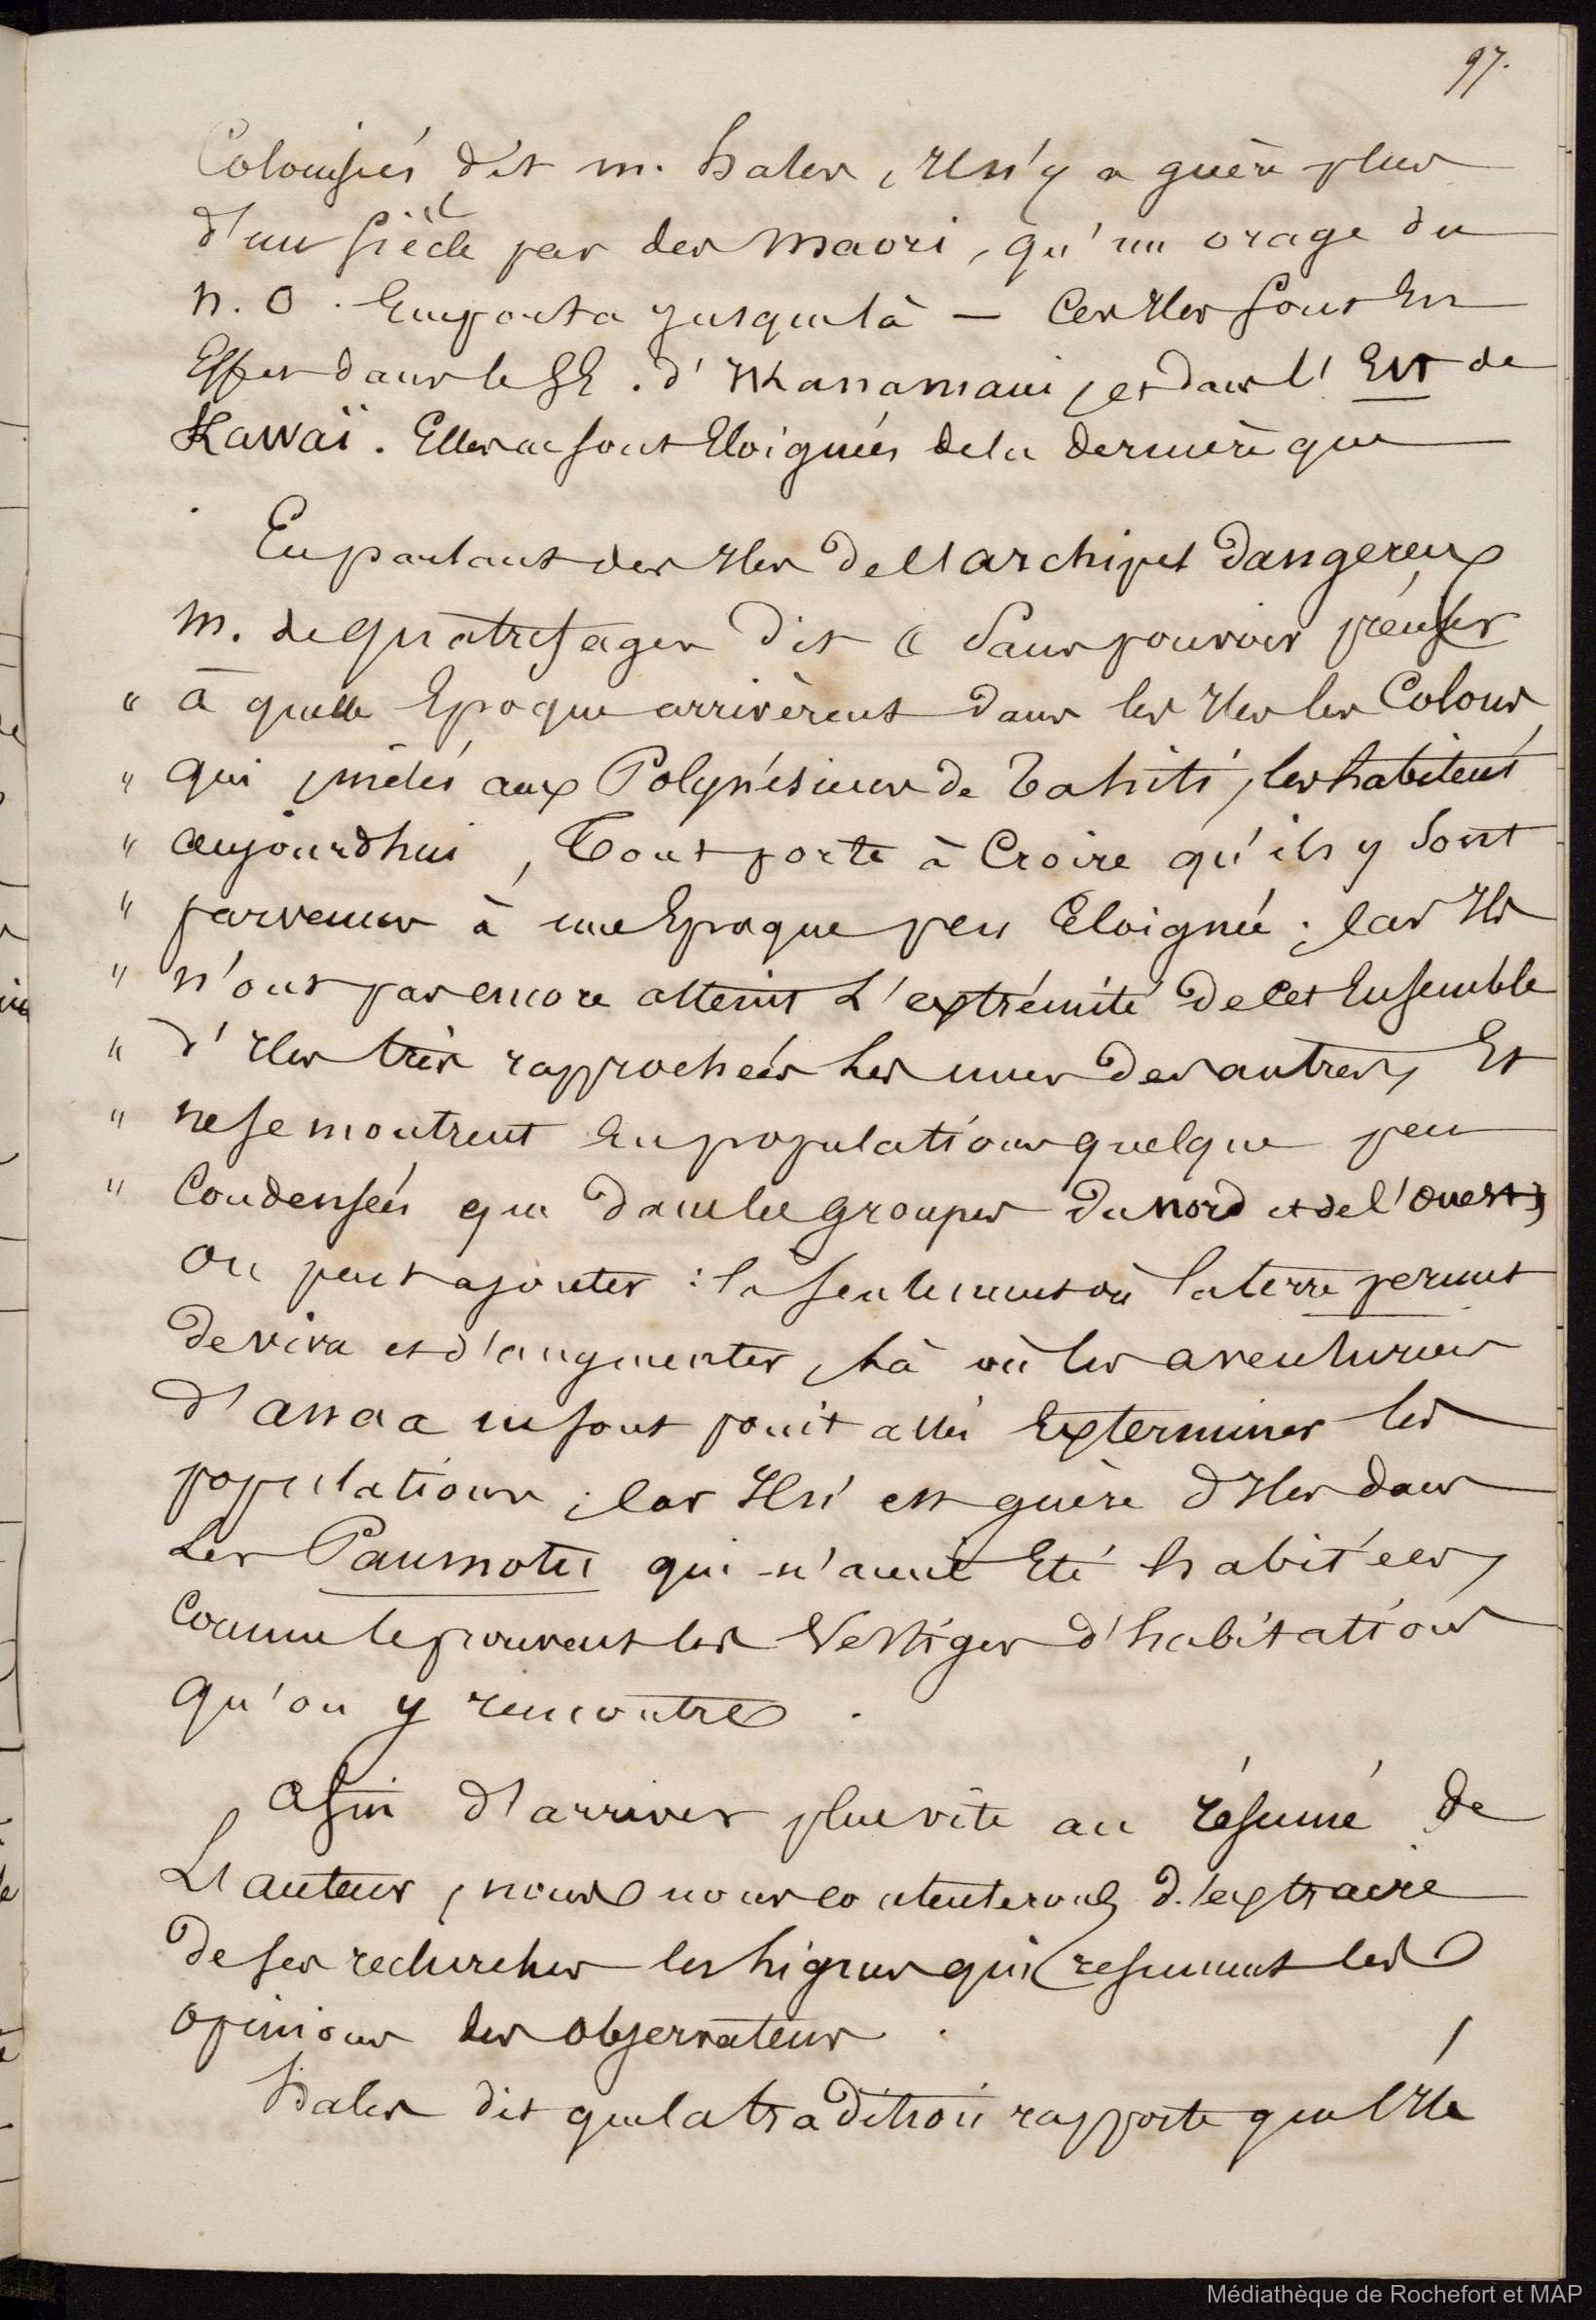 97.
Colonisées dit M. Hales, il n'y a guère plus
d'un siècle par des Maori, qu'un orage du
N. O. emporta jusque là — Ces îles sont en
effet dans le SE. d' et dans l' Est de
Kawaï. Elles ne sont éloignées de la dernière que
En parlant des îles de l'archipel Dangereux
M. de Quatrefages dit « Sans pouvoir préciser
" à quelle époque arrivèrent dans les îles les Colons
" qui, mêlés aux Polynésiens de Tahiti, les habitent
" aujourdhui, Tout porte à croire qu'ils y sont
" parvenus à une époque peu éloignée ; car ils
" n'ont pas encore atteint l'extrémité de cet ensemble
" d'îles très rapprochées les unes des autres, et
" ne se montrent en populations quelque peu
" condensées que dans les groupes du nord et de l'ouest »
on peut ajouter : là seulement où la terre permet
de vivre et d'augmenter, là où les aventuriers
d'Anaa ne sont point allés exterminer les
populations ; car il n'est guère d'îles dans
les Paumotu qui n'aient été habitées,
comme le prouvent les vestiges d'habitations
qu'on y rencontre.
Afin d'arriver plus vite au résumé de
l'auteur, nous nous contenterons d'extraire
de ses recherches les lignes qui resument les
opinions des observateurs.
Hales dit que la tradition rapporte que l'île
Médiathèque de Rochefort et MAP